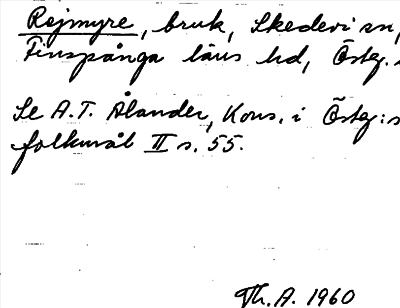 Rejmyre, bruk, Skedevi sn,
Finspånga läns hd, Östg.
Se A.T. Ålander, Kons. i Östg:s
folkmål II s. 55.
Th. A. 1960